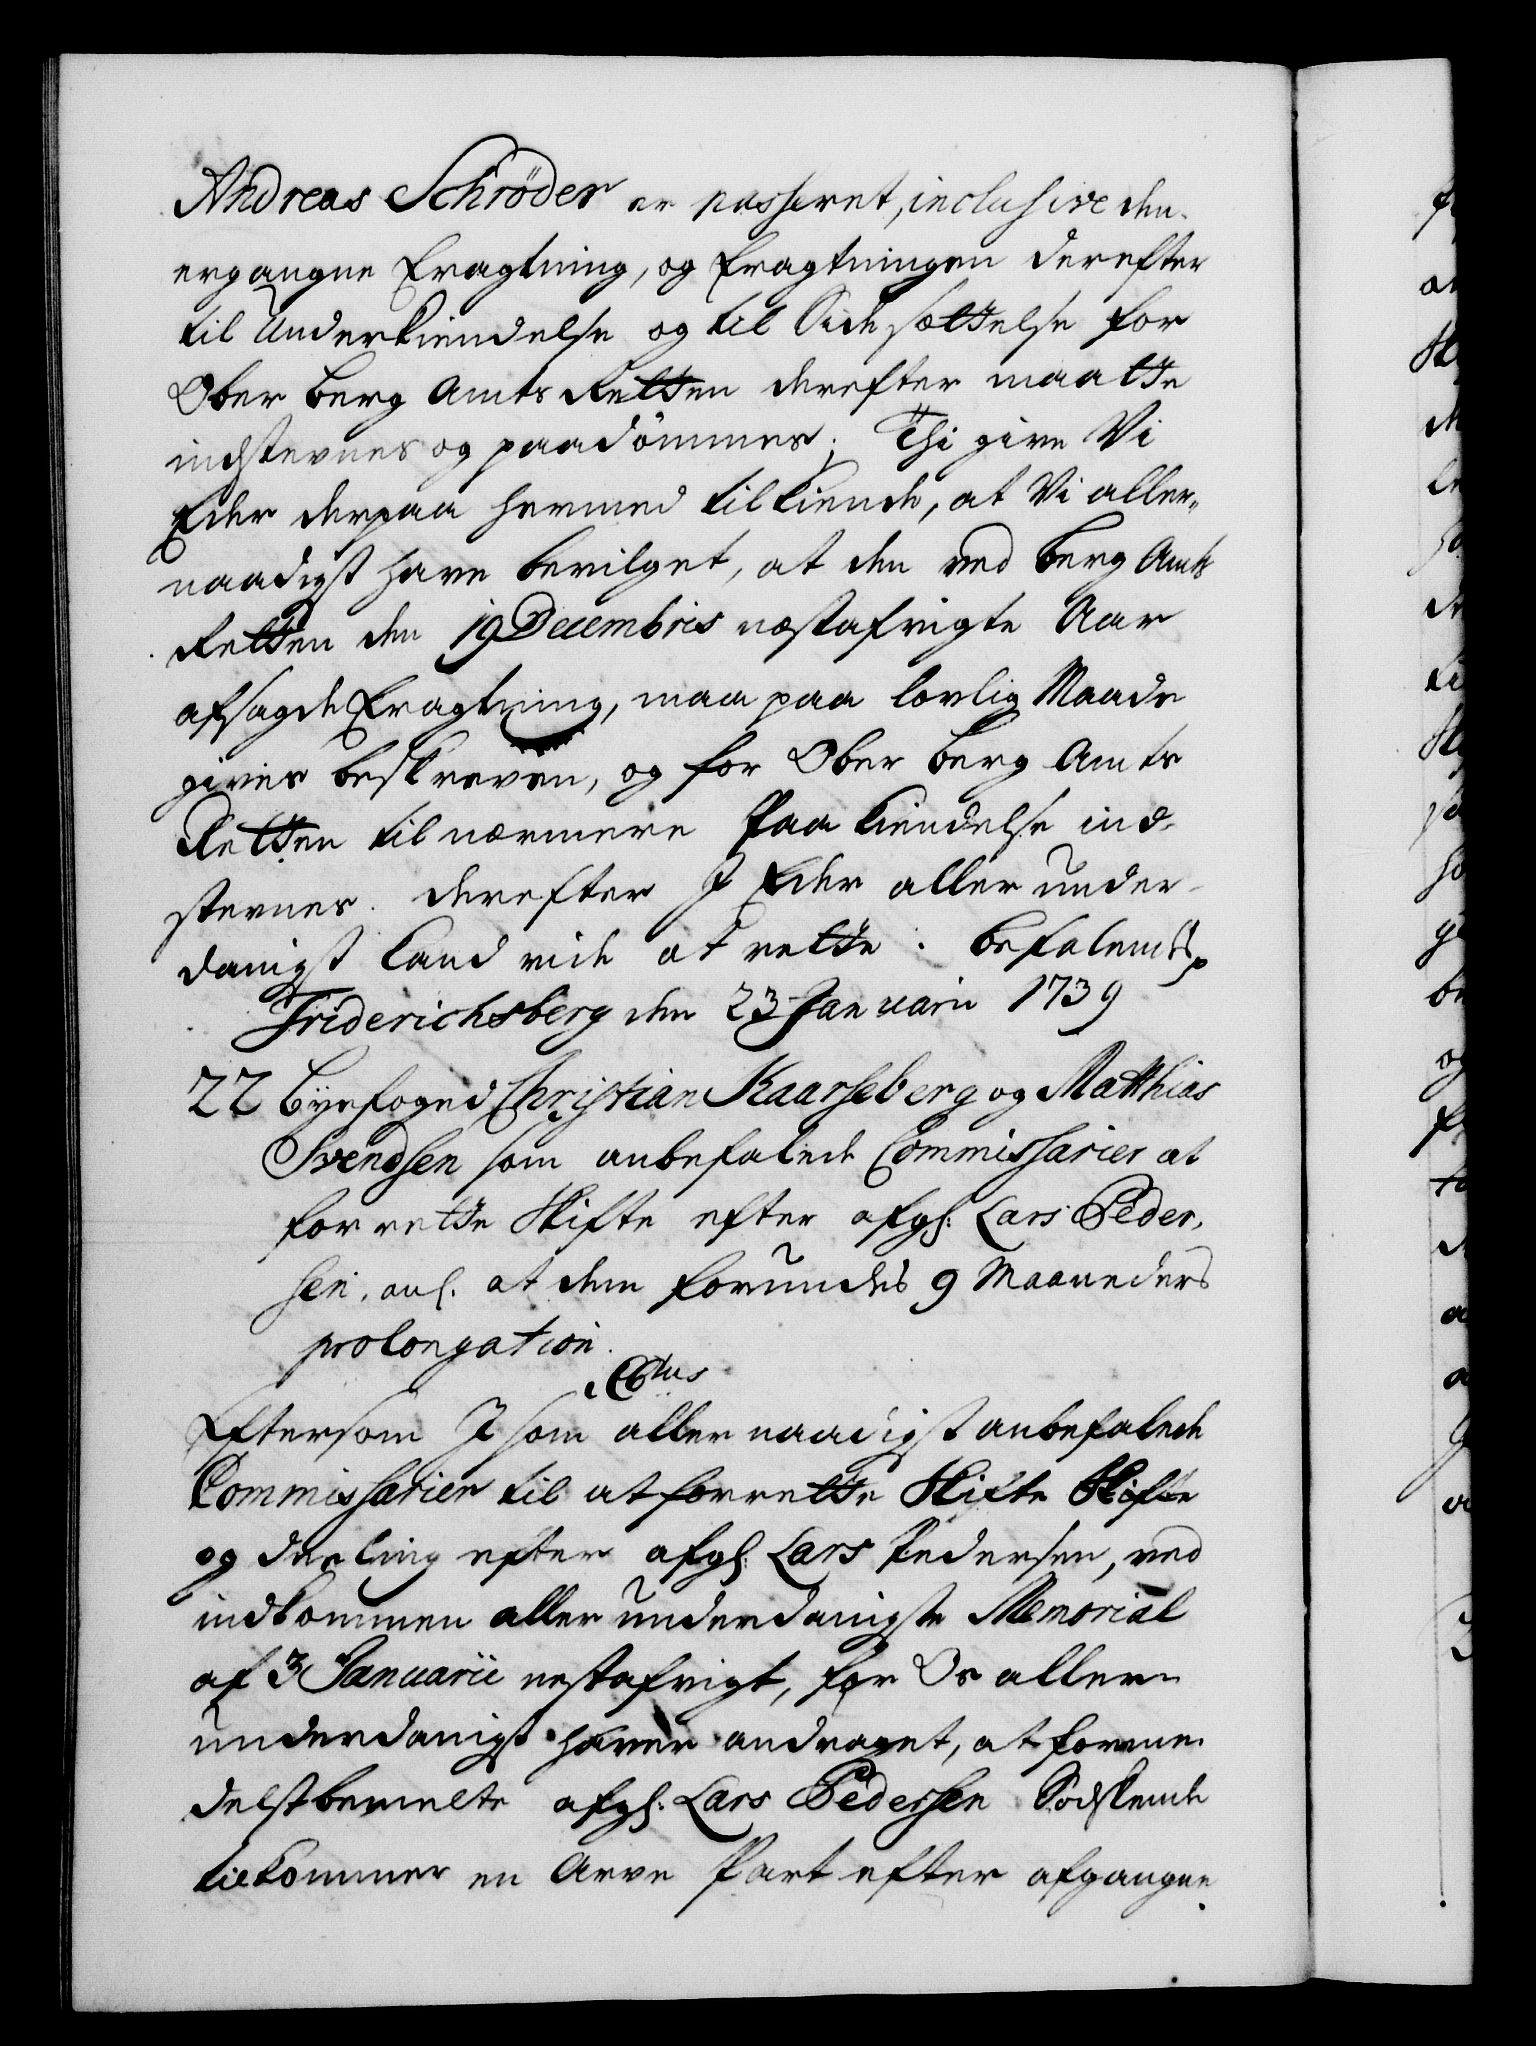 Andreas Schrøder er passeret, inclusive den
ergangne Eragtning, og Eragtningen derefter
til Underkiendelse og til Side sættelse for
Ober Berg Amts Retten derefter maatte
indstevnes og paadømmes; Thi give Vi
Eder derpaa hermed tilkiende, at Vi aller„
naadigst have bevilget, at den ved Berg Amts
Retten den 19 Decembris næstafvigte Aar
afsagde Eragtning, maa paa lovlig Maade
gives beskreven, og for Ober Berg Amts
Retten til nærmere Paa kiendelse ind„
stevnes. derefter I Eder aller under„
danigst Land vide at rette. Befalendes p
Friderichsberg den 23 Januarii 1739
22 Byefoged Christian Kaarsberg og Matthias
Svendsen som anbefalede Commissarier at
forrette Skifte efter afgl: Lars Peder„
sen, anl. at dem forundes 9 Maaneders
prolongation.
C 6tus
Eftersom I som aller naadigst anbefalede
Commissarier til at forrette Skifte Skifte
og Deeling efter afgl: Lars Pedersen, ved
indkommen aller underdanigste Memorial
af 3 Januarii nestafvigt, for Os aller„
underdanigst haver andraget, at forme„
delst bemelte afgl: Lars Pedersen Sødskende
tilkommer en Arve Part efter afgangne